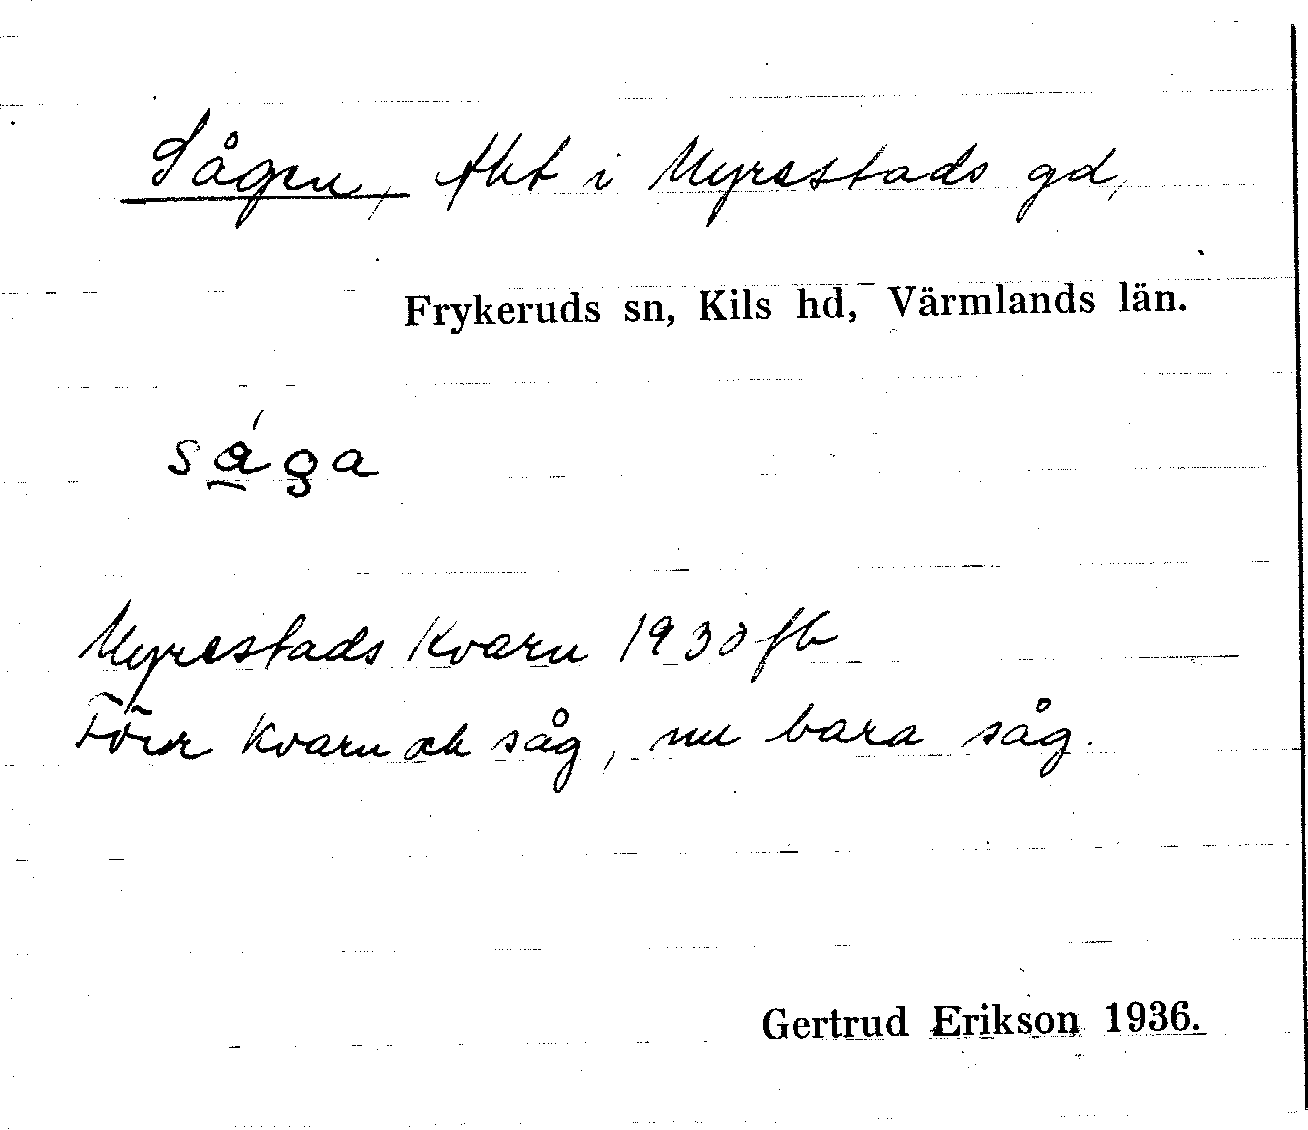 Sågen, tkt i Myrestads gd,
Frykeruds sn, Kils hd, Värmlands län.
såga
Myrestads Kvarn 1930 fb
Förr kvarn och såg, nu bara såg.
Gertrud Erikson 1936.